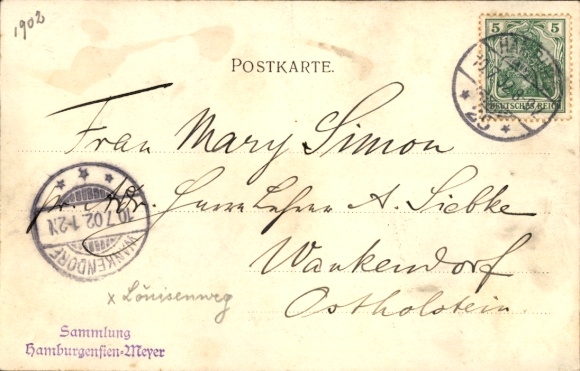 1902
5 5
DEUTSCHES REICH
HAMBURG
25
POSTKARTE.
Frau Mary Simon
pr. Adr. Herrn Lehrer A. Siebke
Wankendorf
Ostholstein.
WANKENDORF
10.7.02. 1-2N
x Louisenweg
Sammlung
Hamburgensien-Meyer